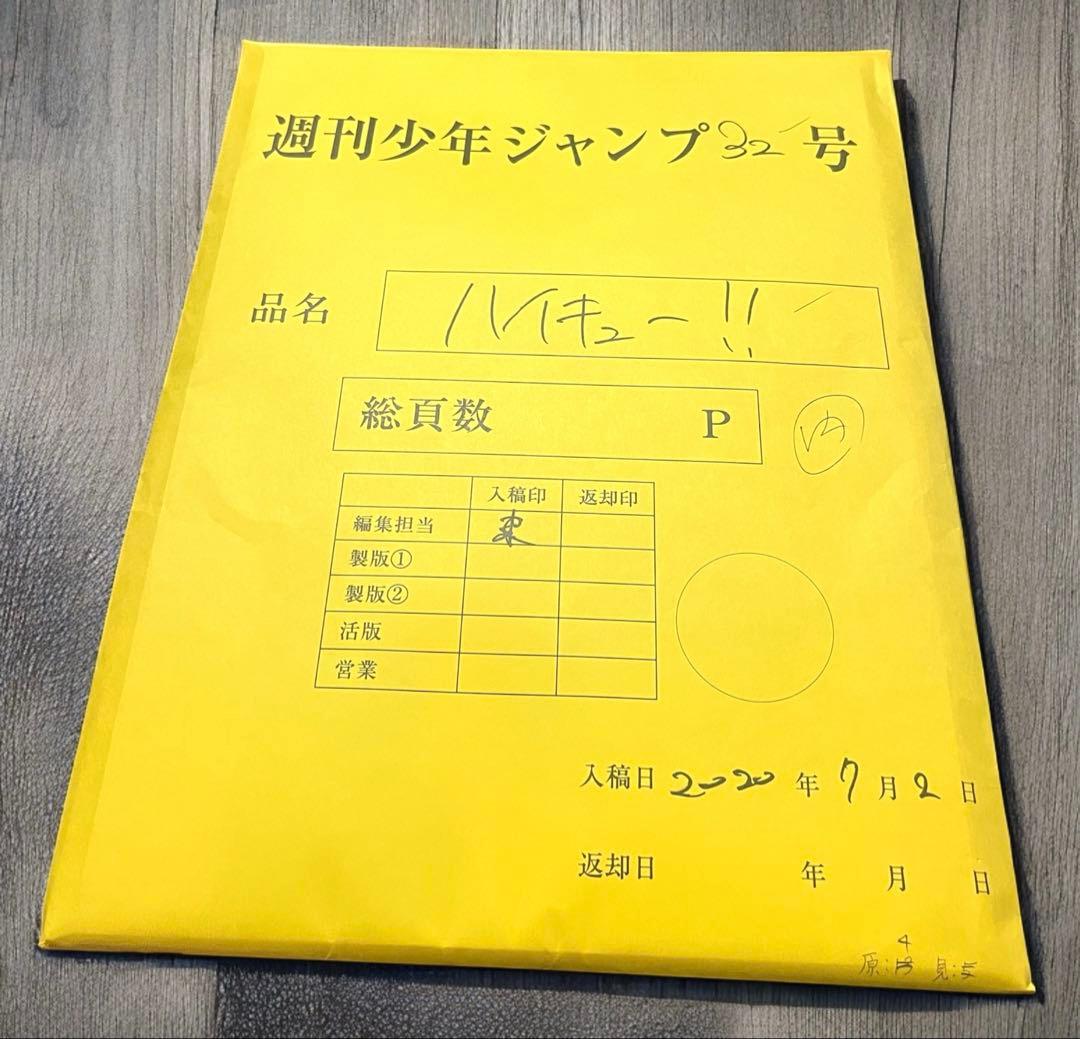 週刊少年ジャンプ32号
品名 ハイキュー!!
総頁数 P
入稿印 返却印
編集担当
製版①
製版②
活版
営業
入稿日 2020年7月2日
返却日 年 月 日
4